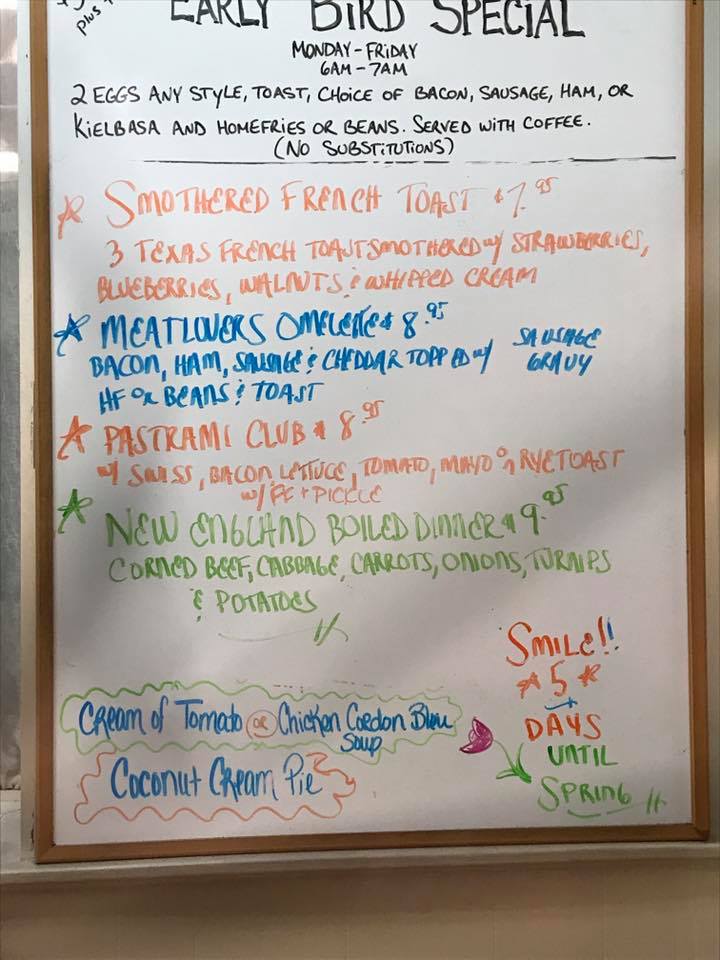 plus
EARLY BIRD SPECIAL
MONDAY-FRIDAY
6AM-7AM
2 EGGS ANY STYLE, TOAST, CHOICE OF BACON, SAUSAGE, HAM, OR
KIELBASA AND HOMEFRIES OR BEANS. SERVED WITH COFFEE.
(NO SUBSTITUTIONS)
SMOTHERED FRENCH TOAST $7.95
3 TEXAS FRENCH TOAST SMOTHERED w/ STRAWBERRIES,
BLUEBERRIES, WALNUTS & WHIPPED CREAM
MEATLOVERS OMELETTE $8.95
BACON, HAM, SAUSAGE & CHEDDAR TOPPED w/ SAUSAGE GRAVY
HF OR BEANS & TOAST
PASTRAMI CLUB $8.95
w/ SWISS, BACON, LETTUCE, TOMATO, MAYO on RYE TOAST
w/ FF + PICKLE
NEW ENGLAND BOILED DINNER $9.95
CORNED BEEF, CABBAGE, CARROTS, ONIONS, TURNIPS
& POTATOES
Cream of Tomato OR Chicken Cordon Bleu
Soup
Coconut Cream Pie
SMILE!!
5
DAYS
UNTIL
SPRING